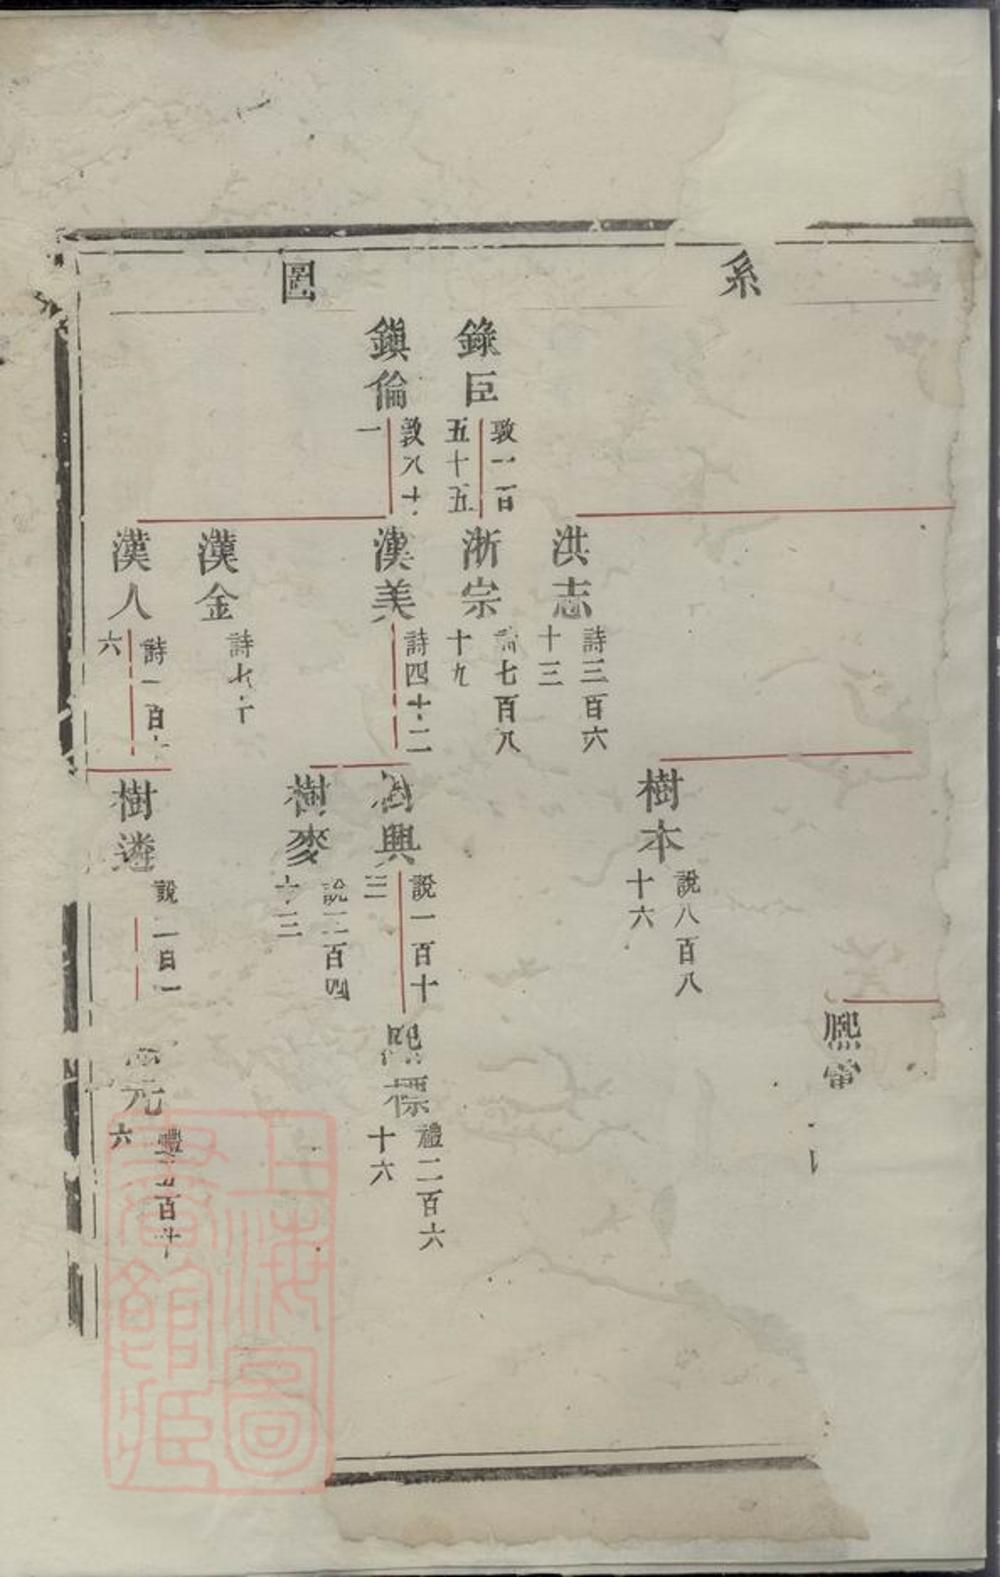 系圖
錄臣
敦一百五十五
鎮倫
敦八十一
洪志
詩三百六十三
浙宗
七百八十九
漢美
詩四十二
漢金
詩七十
漢人
詩一百六
樹本
說八百八十六
樹興
說一百十三
樹麥
說三百四十三
樹遴
說二百一
熙
熙標
禮二百六十六
元
禮百六
上海圖書館藏